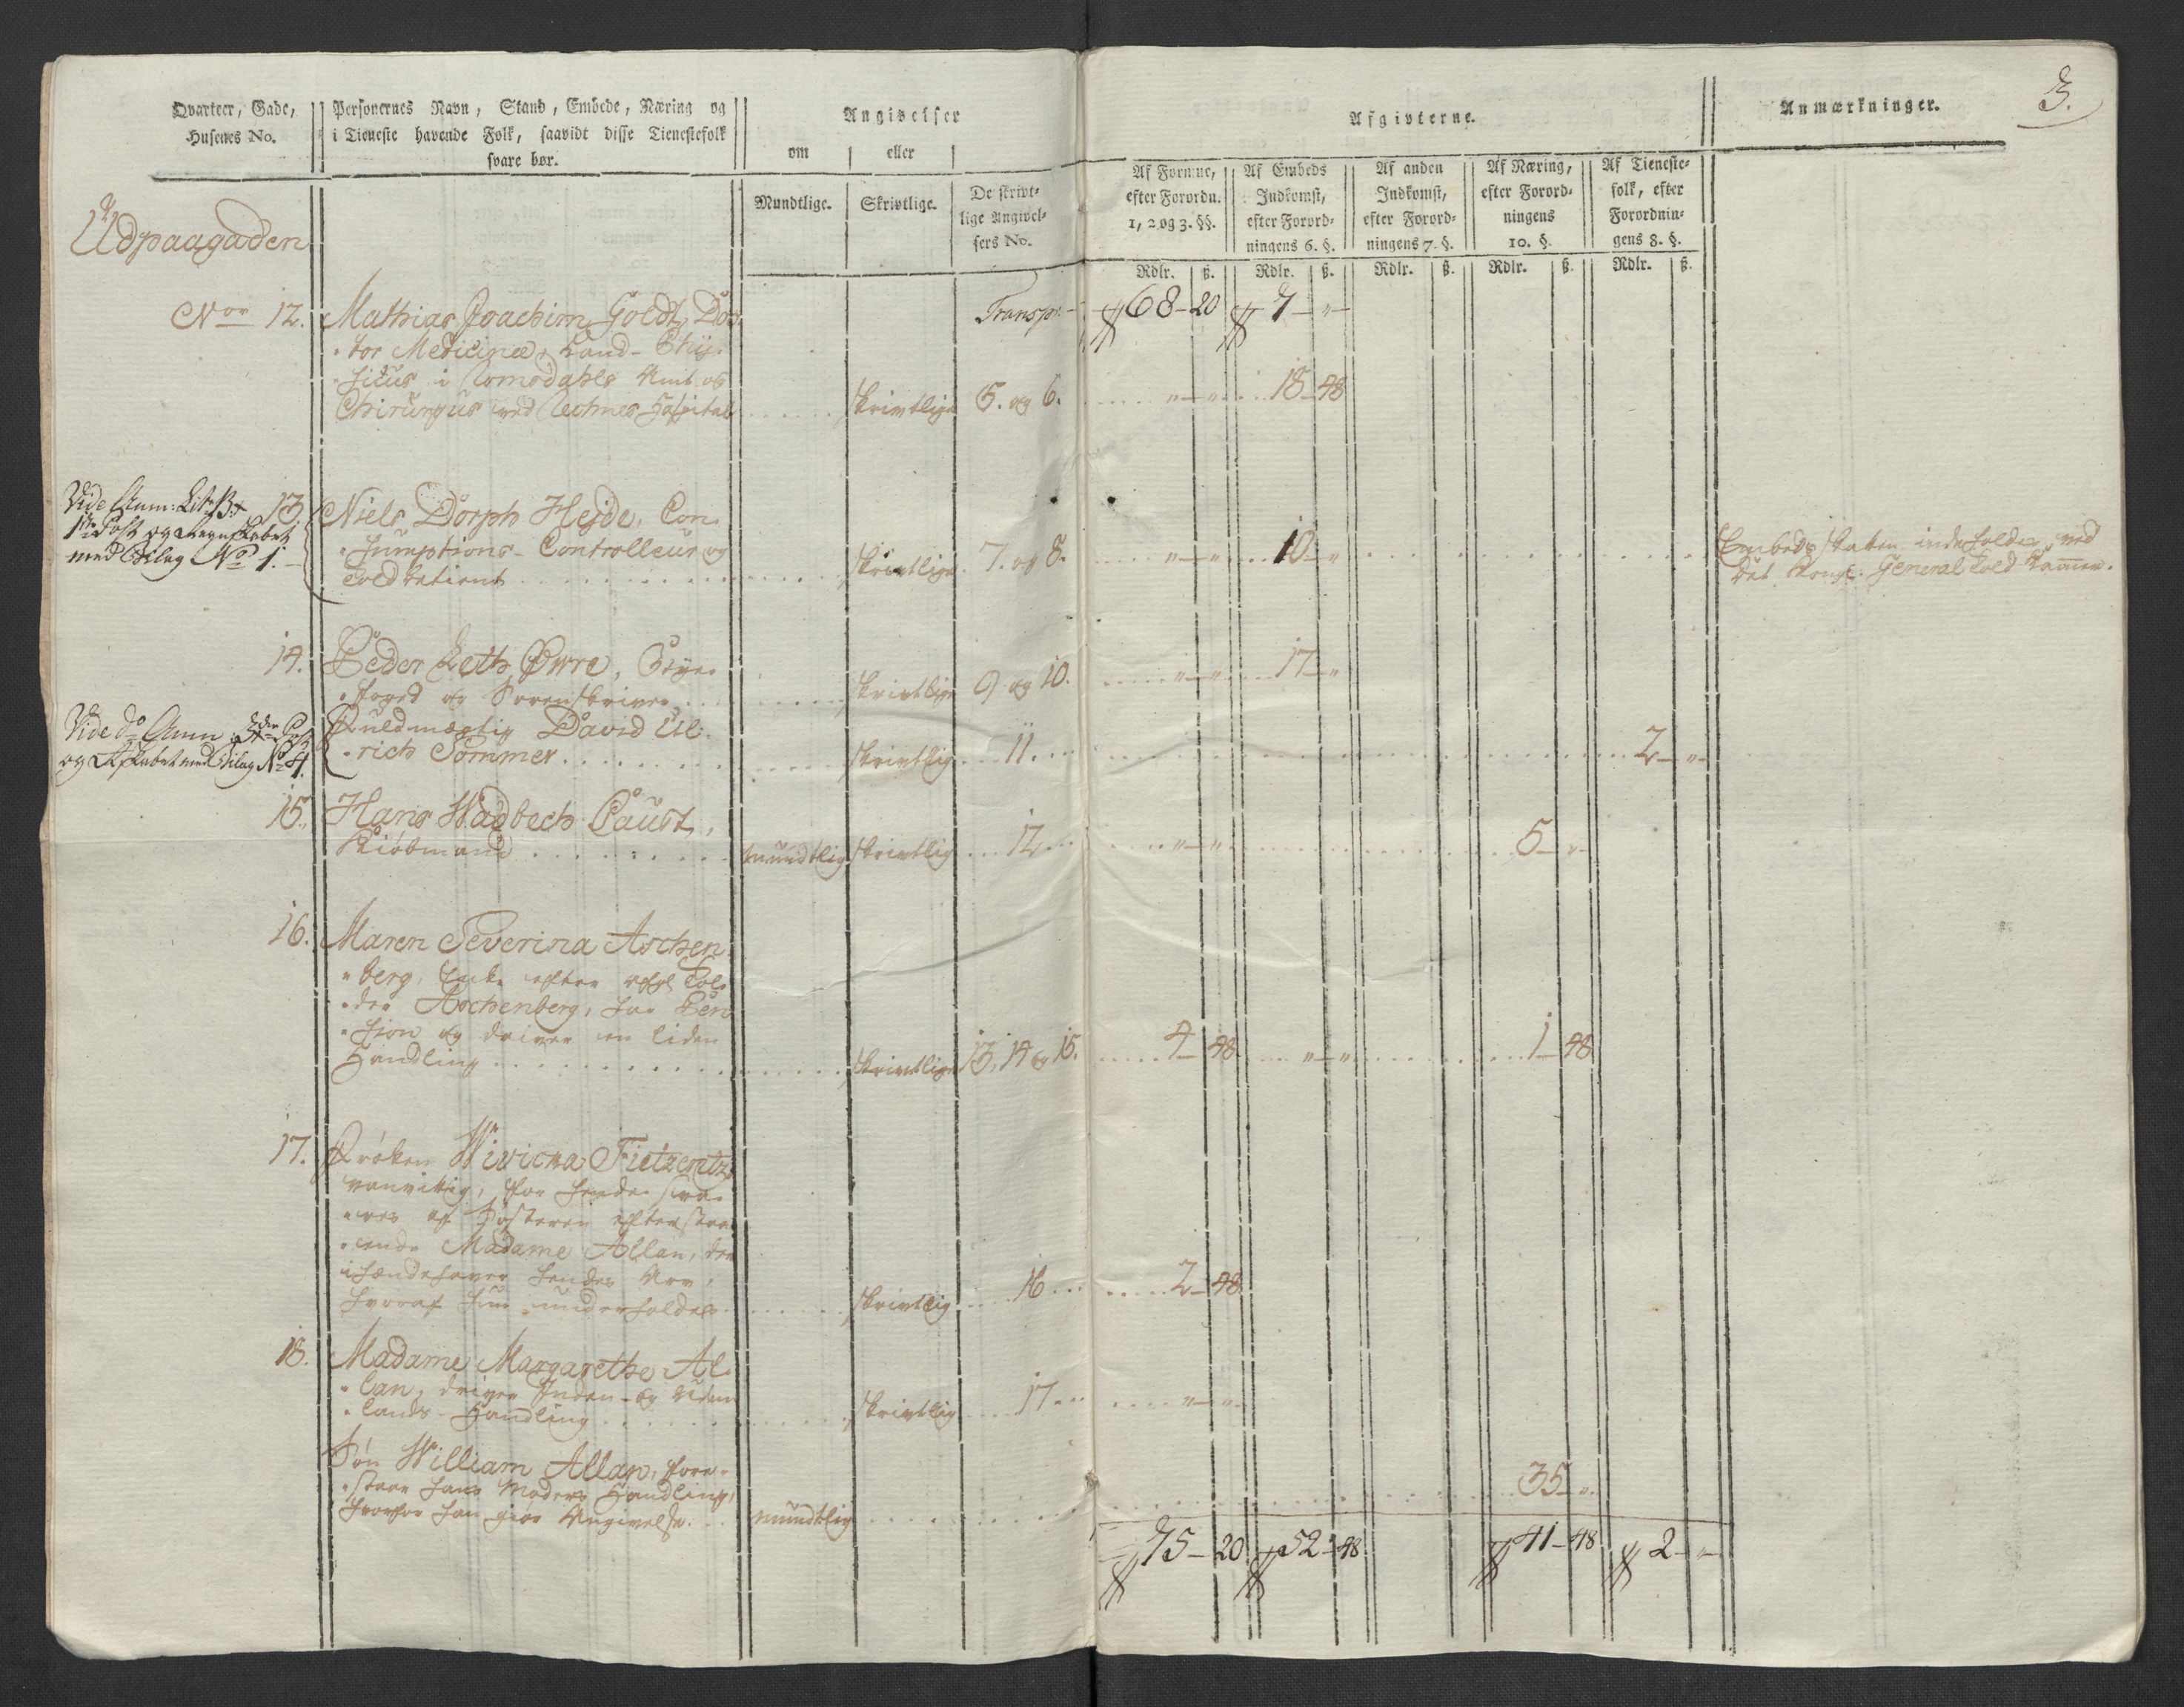 3.
Qvarteer, Gade,
Husenes No.
Personernes Navn, Stand, Embede, Næring og
i Tieneste havende Folk, saavidt disse Tienestefolk
svare bør.
Angivelser
om eller
Mundtlige. Skrivtlige. De skrivt-
lige Angivel-
sers No.
Afgivterne.
Af Formue,
efter Forordn.
1, 2 og 3. §§.
Af Embeds
Indkomst,
efter Forord-
ningens 6. §.
Af anden
Indkomst,
efter Forord-
ningens 7. §.
Af Næring,
efter Forord-
ningens
10. §.
Af Tieneste-
folk, efter
Forordnin-
gens 8. §.
Anmærkninger.
Rdlr. ß. Rdlr. ß. Rdlr. ß. Rdlr. ß. Rdlr. ß.
Udpaagaden
Transp. 68-20 7 - "
Nro 12. Mathias Joachim Goldt, Doc-
tor Medicinæ, Land-Phy-
sicus i Romsdahls Amt og
Chirurgus ved Reknes Hospital skrivtlige 5. og 6. " - " 18-48
Vide Anm: Litr B:
1ste Post og Regnskabet
med Bilag No 1.
13. Niels Dorph Hejde, Con-
sumptions-Controlleur og
Toldbetient skrivtlige 7. og 8. " - " 10 - "
Embeds skatten indeholdes ved
det Kongl: General Told Kammer.
14. Peder Leth Øwre, Bye-
foged og Sorenskriver skrivtlige 9 og 10. " - " 17 - "
Vide do Anm: 2den Post
og Regnskabet med Bilag No 4.
Fuldmægtig David Ul-
rich Sommer skrivtlig 11. 2 - "
15. Hans Wadbech Paust,
Kiøbmand mundtlig skrivtlig 12 " - " 5 - "
16. Maren Severina Aschen-
berg, Enke efter afg: Tol-
der Aschenberg, har Pen-
sion og driver en liden
Handling skrivtlige 13, 14 og 15. 4-48 " - " 1-48
17. Frøken Wivicka Fietzentz,
vanvittig, for hende sva-
res af Søsteren efterstaa-
ende Madame Allan, der
ihændehaver hendes Arv,
hvoraf hun underholdes skrivtlig 16 2-48
18. Madame Margarethe Al-
lan, driver Inden- og Uden-
lands-Handling skrivtlig 17 " - "
Søn William Allan, fore-
staar hans Moders Handling,
hvorfor han giør Angivelse. mundtlig 35 - "
75-20 52-48 41-48 2 - "